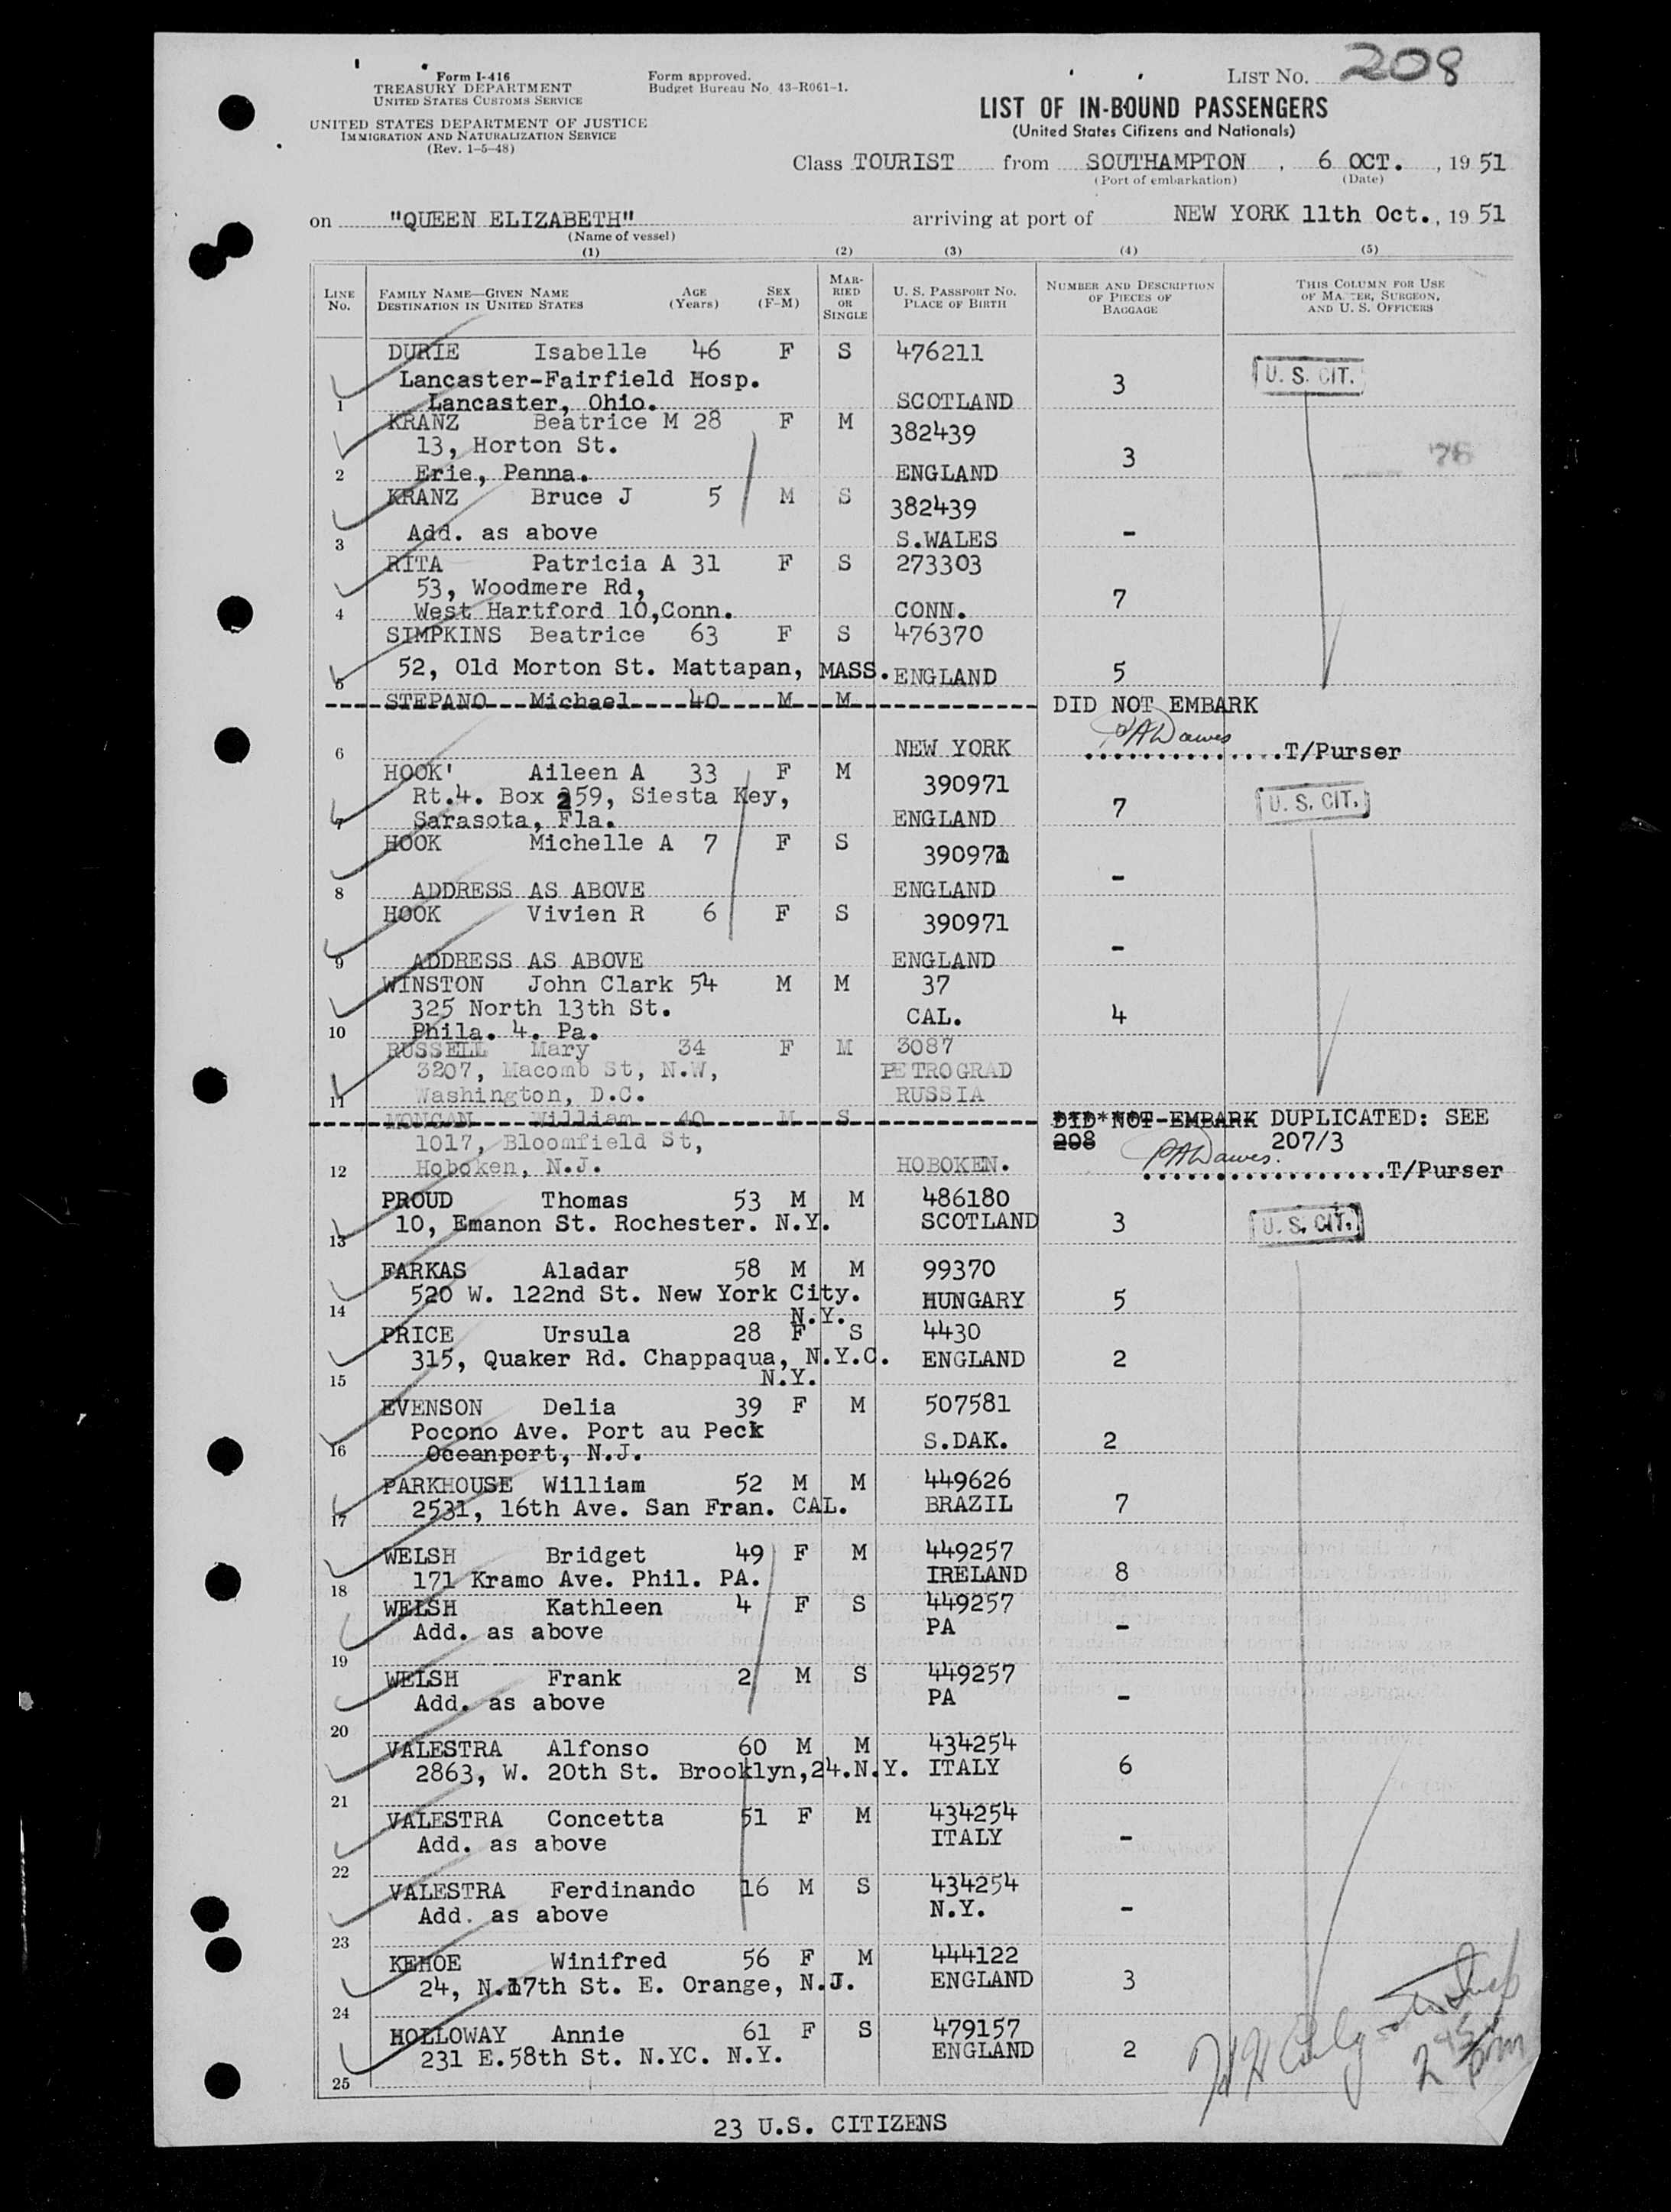 LIST No. 208
Form I-416
TREASURY DEPARTMENT
UNITED STATES CUSTOMS SERVICE
Form approved.
Budget Bureau No. 43-R061-1.
UNITED STATES DEPARTMENT OF JUSTICE
IMMIGRATION AND NATURALIZATION SERVICE
(Rev. 1-5-48)
LIST OF IN-BOUND PASSENGERS
(United States Citizens and Nationals)
Class TOURIST from SOUTHAMPTON, 6 OCT., 19 51
(Port of embarkation) (Date)
on "QUEEN ELIZABETH" arriving at port of NEW YORK 11th Oct., 19 51
(Name of vessel)
(1) (2) (3) (4) (5)
LINE No. FAMILY NAME—GIVEN NAME DESTINATION IN UNITED STATES AGE (Years) SEX (F-M) MARRIED OR SINGLE U. S. PASSPORT No. PLACE OF BIRTH NUMBER AND DESCRIPTION OF PIECES OF BAGGAGE THIS COLUMN FOR USE OF MASTER, SURGEON, AND U. S. OFFICERS
DURIE Isabelle 46 F S 476211
Lancaster-Fairfield Hosp. 3 U. S. CIT.
1 Lancaster, Ohio. SCOTLAND
KRANZ Beatrice M 28 F M 382439
13, Horton St. 3 76
2 Erie, Penna. ENGLAND
KRANZ Bruce J 5 M S 382439
3 Add. as above S.WALES -
RITA Patricia A 31 F S 273303
53, Woodmere Rd, 7
4 West Hartford 10,Conn. CONN.
SIMPKINS Beatrice 63 F S 476370
5 52, Old Morton St. Mattapan, MASS. ENGLAND 5
STEPANO Michael 40 M M DID NOT EMBARK
PADawes
6 NEW YORK T/Purser
HOOK' Aileen A 33 F M 390971
Rt.4. Box 259, Siesta Key, 7 U. S. CIT.
7 Sarasota, Fla. ENGLAND
HOOK Michelle A 7 F S 390971
8 ADDRESS AS ABOVE ENGLAND -
HOOK Vivien R 6 F S 390971
9 ADDRESS AS ABOVE ENGLAND -
WINSTON John Clark 54 M M 37
325 North 13th St. CAL. 4
10 Phila. 4. Pa.
RUSSELL Mary 34 F M 3087
3207, Macomb St, N.W, PETROGRAD
11 Washington, D.C. RUSSIA
MONGAN William 40 M S DID NOT EMBARK DUPLICATED: SEE
1017, Bloomfield St, 208 207/3
PADawes.
12 Hoboken, N.J. HOBOKEN. T/Purser
PROUD Thomas 53 M M 486180
13 10, Emanon St. Rochester. N.Y. SCOTLAND 3 U. S. CIT.
FARKAS Aladar 58 M M 99370
14 520 W. 122nd St. New York City. HUNGARY 5
N.Y.
PRICE Ursula 28 F S 4430
315, Quaker Rd. Chappaqua, N.Y.C. ENGLAND 2
15 N.Y.
EVENSON Delia 39 F M 507581
Pocono Ave. Port au Peck S.DAK. 2
16 Oceanport, N.J.
PARKHOUSE William 52 M M 449626
17 2531, 16th Ave. San Fran. CAL. BRAZIL 7
WELSH Bridget 49 F M 449257
18 171 Kramo Ave. Phil. PA. IRELAND 8
WELSH Kathleen 4 F S 449257
Add. as above PA -
19
WELSH Frank 2 M S 449257
Add. as above PA -
20
VALESTRA Alfonso 60 M M 434254
2863, W. 20th St. Brooklyn,24.N.Y. ITALY 6
21
VALESTRA Concetta 51 F M 434254
Add. as above ITALY -
22
VALESTRA Ferdinando 16 M S 434254
Add. as above N.Y. -
23
KEHOE Winifred 56 F M 444122
24, N.17th St. E. Orange, N.J. ENGLAND 3
24
HOLLOWAY Annie 61 F S 479157
231 E.58th St. N.YC. N.Y. ENGLAND 2
25
2 45 pm
23 U.S. CITIZENS